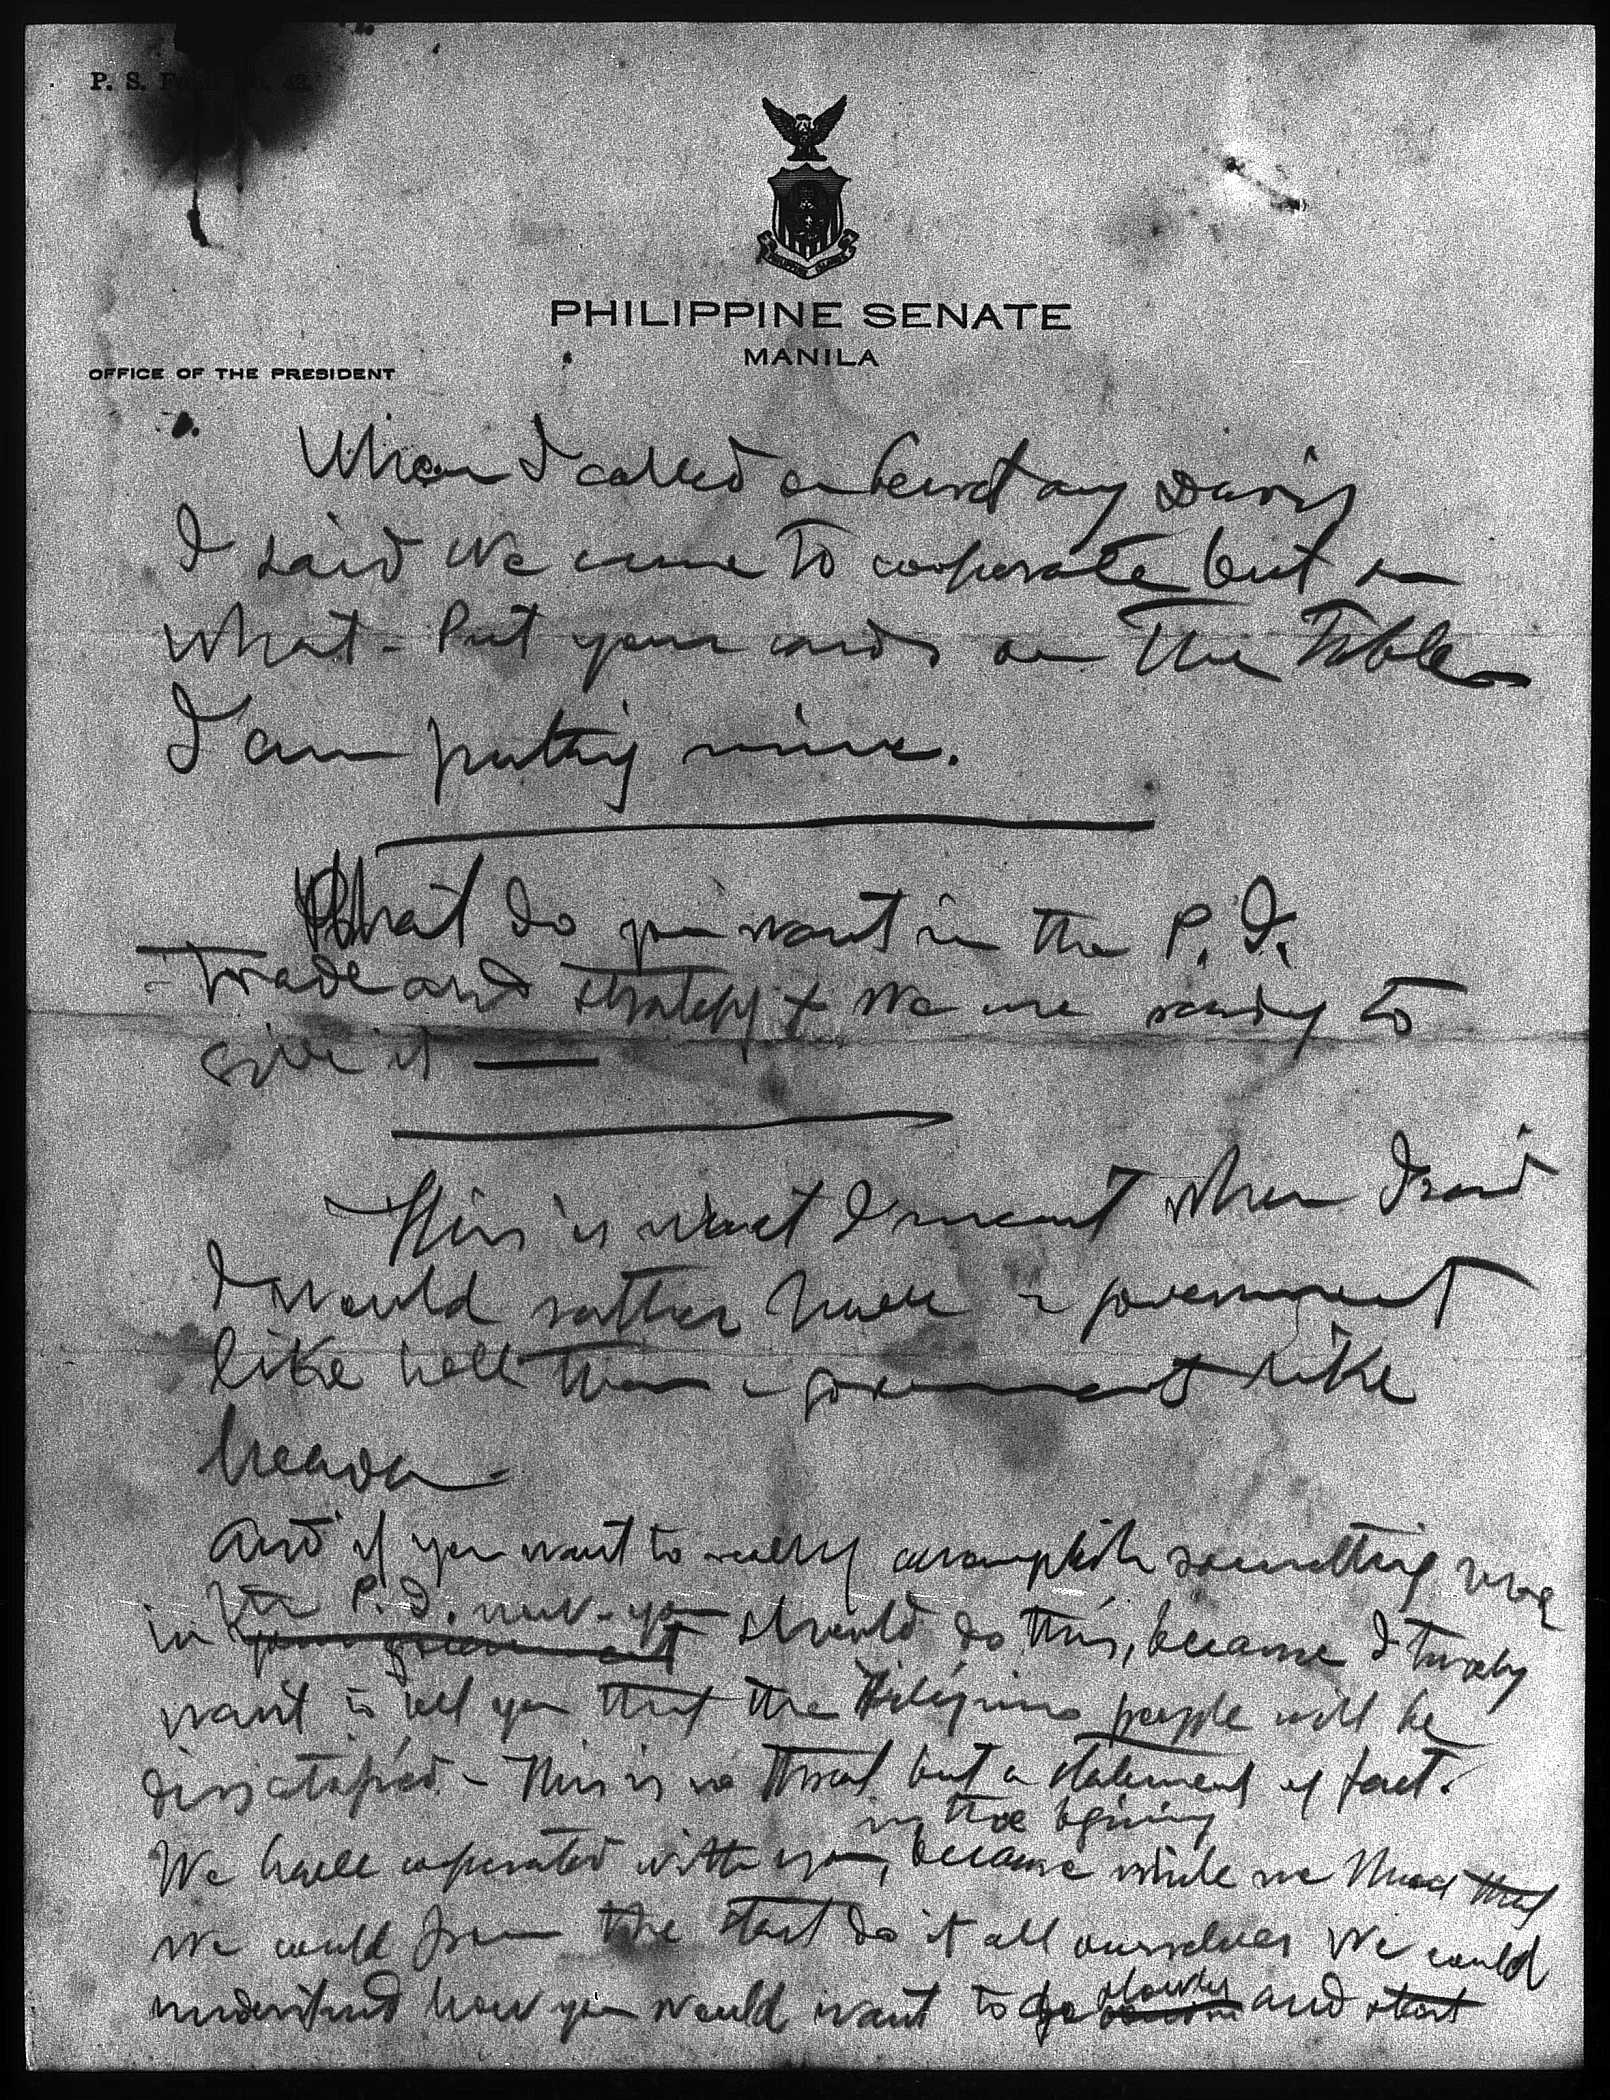 P. S. F
PHILIPPINE SENATE
MANILA
OFFICE OF THE PRESIDENT
When I called on Secretary Davis
I said we came to cooperate but on
what - Put your cards on the table
I am putting mine.
What do you want in the P. I.
- Trade and strategy + we are ready to
give it —
This is what I meant when I said
I would rather have a government
like hell than a government like
heaven -
And if you want to really accomplish something
in the P. I. now - you should do this, because I
your government
want to tell you that the Filipino people will be
disatisfied - This is no threat but a statement of fact.
in the begining
We have cooperated with you, because while we that
we could from the start do it all ourselves we could
slowly
understand how you would want to go and start